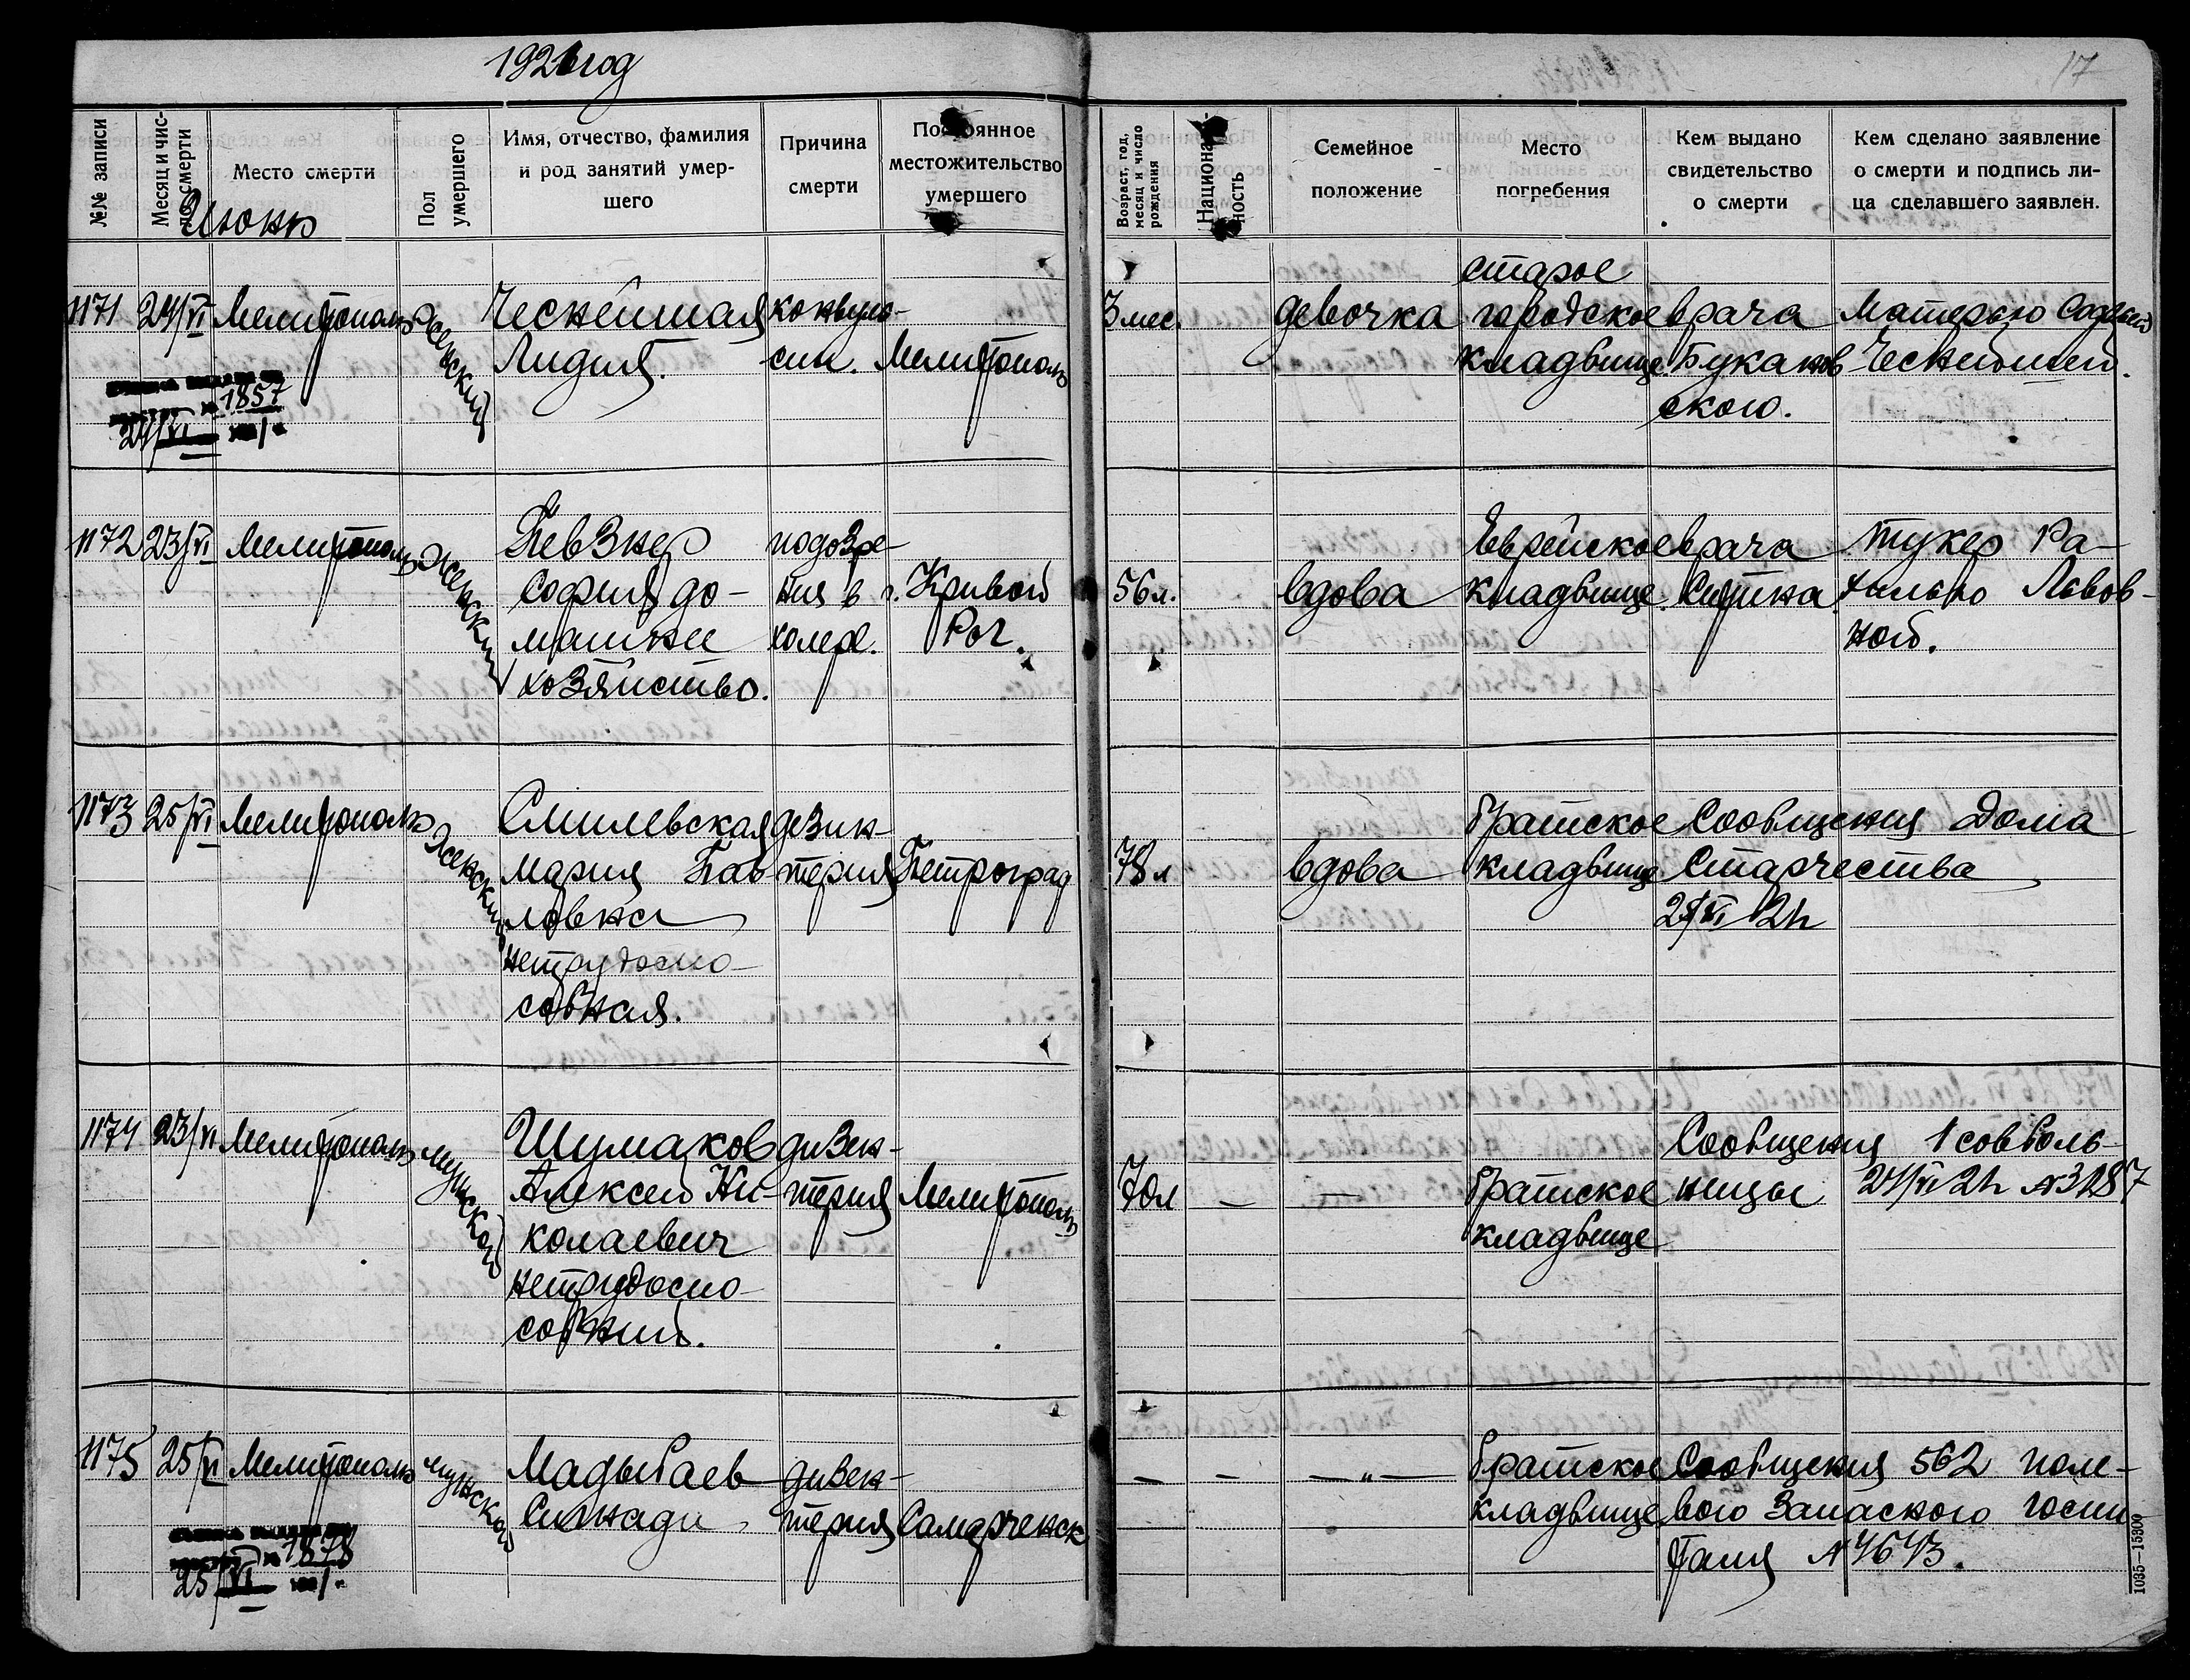 1921 год
17
№№ записи
Месяц и число смерти
Место смерти
Пол умершего
Имя, отчество, фамилия
и род занятий умер-
шего
Причина
смерти
местожительство
умершего
Возраст, год,
месяц и число
рождения
Семейное
положение
Место
погребения
Кем выдано
свидетельство
о смерти
Кем сделано заявление
о смерти и подпись ли-
ца сделавшего заявлен.
Июнь
1171 24/VI Мелитополь Женский
Лидия.
конвуль-
сии.
Мелитополь
3 мес.
девочка
старое
городское
кладбище.
врача
Буканов
ского.
Матерью
1857
24/VI
1172 23/VI Мелитополь Женский
Певзнер
София до-
машнее
хозяйство.
подозре-
ния в
холере.
г. Кривой
Рог.
56 л.
вдова
Еврейское
кладбище.
врача
Тукер Ра-
хилью Львов-
ной.
1173 25/VI Мелитополь Женский
Смилевская
Мария Пав
ловна
нетрудоспо-
собная.
дизен-
терия
Петроград
78 л
вдова
братское
кладбище
Сообщения Дома
Старчества
1174 23/VI Мелитополь мужской
Шумаков
Алексей Ни-
колаевич
нетрудоспо-
собный.
дизен-
терия
Мелитополь
70 л — —
братское
кладбище
Сообщения 1 совболь
ницы 24/VI 21 г №3187
1175 25/VI Мелитополь мужской
Мадыбаев
дизен-
терия
— — — „ —
братское
кладбище
Сообщения 562 поле-
вого Запасного госпи
таля №4643.
1878
25/VI
1035—15300